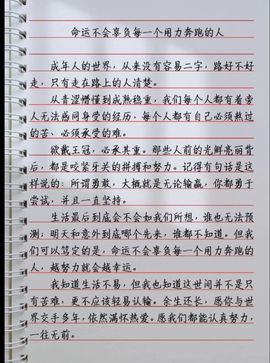 命运不会辜负每一个用力奔跑的人
成年人的世界，从来没有容易二字，路好不好
走，只有走在路上的人清楚。
从青涩懵懂到成熟稳重，我们每个人都有着常
人无法感同身受的经历，每个人都有自己必须熬过
的苦、必须承受的难。
欲戴王冠，必承其重。那些人前的光鲜亮丽背
后，都是咬紧牙关的拼搏和努力。记得有句话是这
样说的：所谓勇敢，大概就是无论输赢，你都勇于
尝试，并且一直坚持。
生活最后到底会不会如我们所想，谁也无法预
测；明天和意外到底哪个先来，谁都不知道。但我
们可以笃定的是，命运不会辜负每一个用力奔跑的
人，越努力就会越幸运。
我知道生活不易，但我也知道这世间并不是只
有苦难，更不应该轻易认输。余生还长，愿你与世
界交手多年，依然满怀热爱。愿我们都能认真努力，
一往无前。